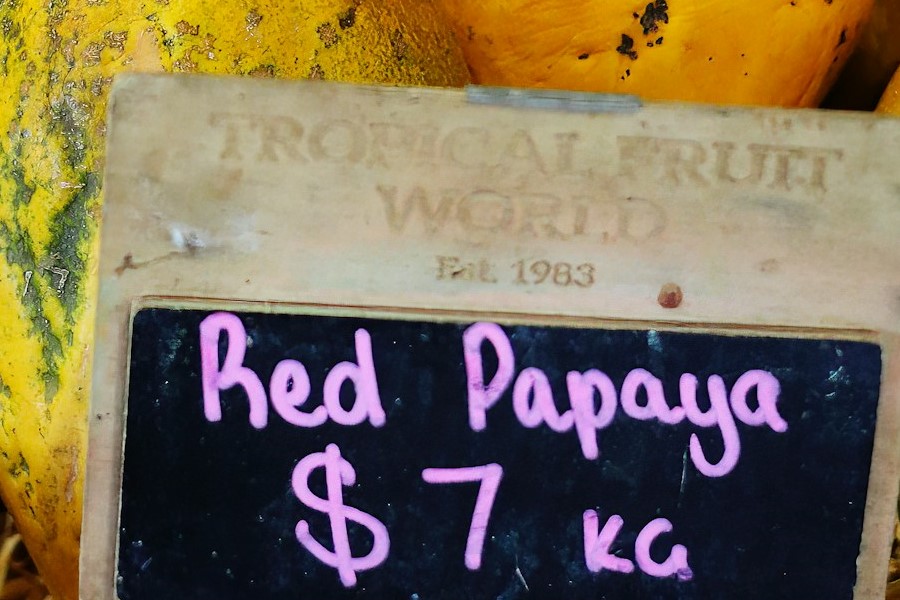 TROPICAL FRUIT
WORLD
Est. 1983
Red Papaya
$7 KG